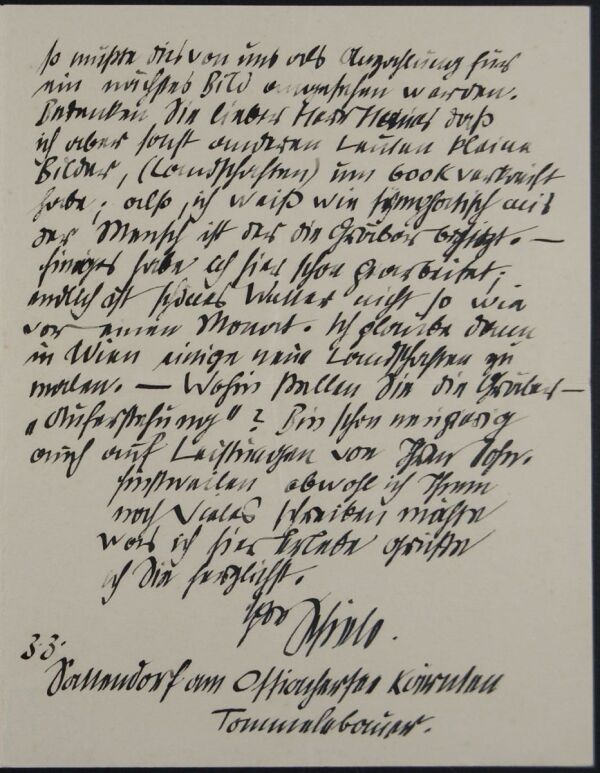 so müßte dies von uns als Anzahlung für
ein nächstes Bild angesehen werden.
Bedenken Sie lieber Herr daß
ich aber sonst anderen Leuten kleine
Bilder, (Landschaften) um 600 K verkauft
habe; also, ich weiß wie sympathisch mir
der Mensch ist der die Gräber besitzt. —
Einiges habe ich hier schon gearbeitet;
endlich ist schönes Wetter nicht so wie
vor einem Monat. Ich glaube dann
in Wien einige neue Landschaften zu
malen. — Wohin stellen Sie die Gräber —
„Auferstehung“? Bin schon neugierig
auch auf Leistungen von Ihrem Sohn.
Einstweilen obwohl ich Ihnen
noch Vieles schreiben möchte
was ich hier erlebe grüße
ich Sie herzlichst.
Ihr Schiele.
z.Z.
Sattendorf am Ossiachersee Kärnten
Tommelebauer.